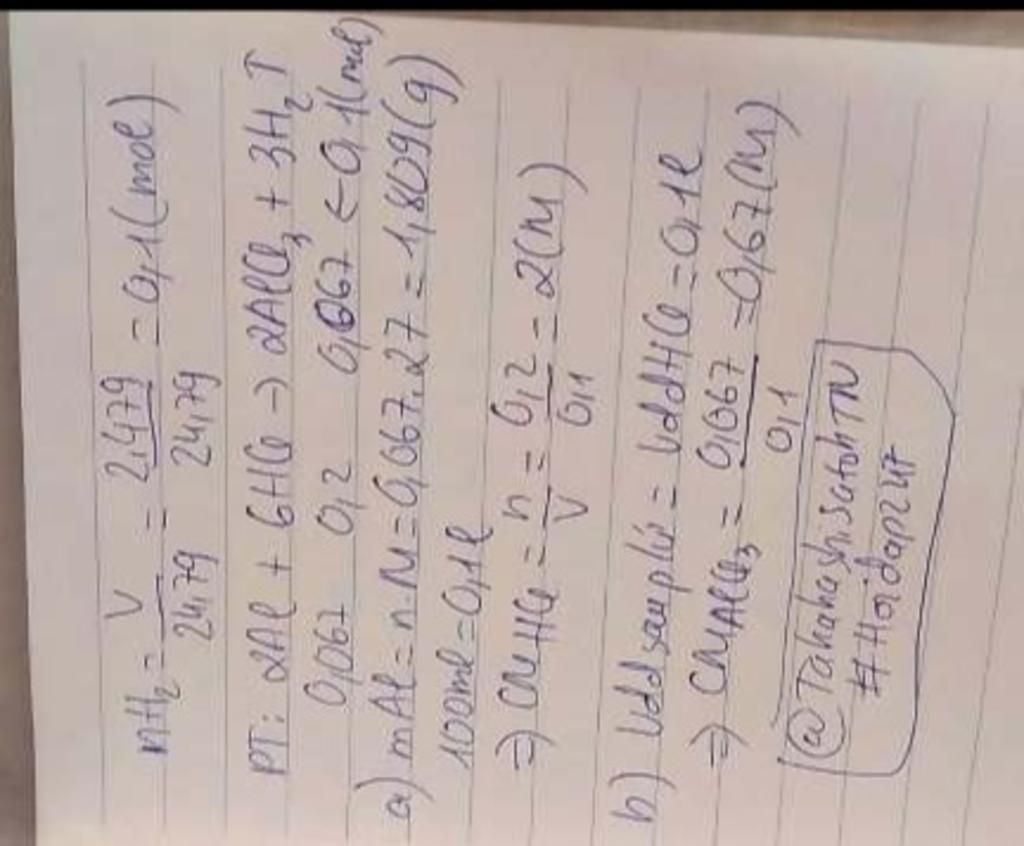 nH₂ = V/24,79 = 2,479/24,79 = 0,1 (mol)
PT: 2Al + 6HCl → 2AlCl₃ + 3H₂↑
0,067 0,2 0,067 ← 0,1 (mol)
a) mAl = n.M = 0,067.27 = 1,809 (g)
100ml = 0,1l
⇒ CM HCl = n/V = 0,2/0,1 = 2 (M)
b) Vdd sau p/ứ = VddHCl = 0,1l
⇒ CM AlCl₃ = 0,067/0,1 = 0,67 (M)
@TakahashisatohTN
#Hoidap247